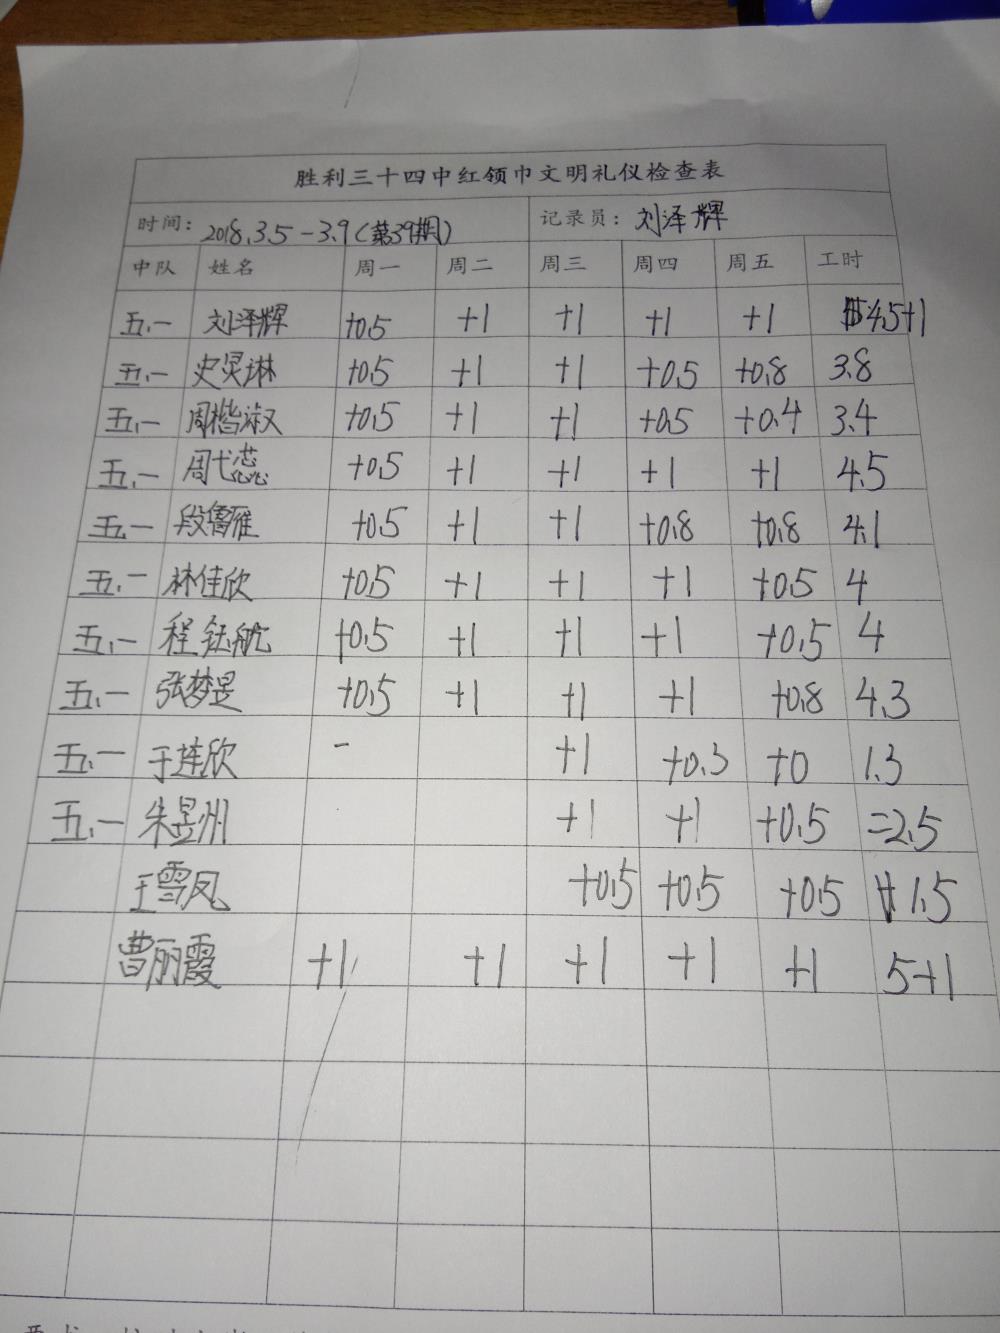 胜利三十四中红领巾文明礼仪检查表
时间: 2018.3.5-3.9(第39期) 记录员: 刘泽辉
中队 姓名 周一 周二 周三 周四 周五 工时
五.一 刘泽辉 +0.5 +1 +1 +1 +1 4.5+1
五.一 史炅琳 +0.5 +1 +1 +0.5 +0.8 3.8
五.一 周楷淑 +0.5 +1 +1 +0.5 +0.4 3.4
五.一 周弋蕊 +0.5 +1 +1 +1 +1 4.5
五.一 段鲁雁 +0.5 +1 +1 +0.8 +0.8 4.1
五.一 林佳欣 +0.5 +1 +1 +1 +0.5 4
五.一 程钰航 +0.5 +1 +1 +1 +0.5 4
五.一 张梦昱 +0.5 +1 +1 +1 +0.8 4.3
五.一 于连欣 - +1 +0.3 +0 1.3
五.一 朱昱州 +1 +1 +0.5 =2.5
王雪凤 +0.5 +0.5 +0.5 1.5
曹丽霞 +1 +1 +1 +1 +1 5+1